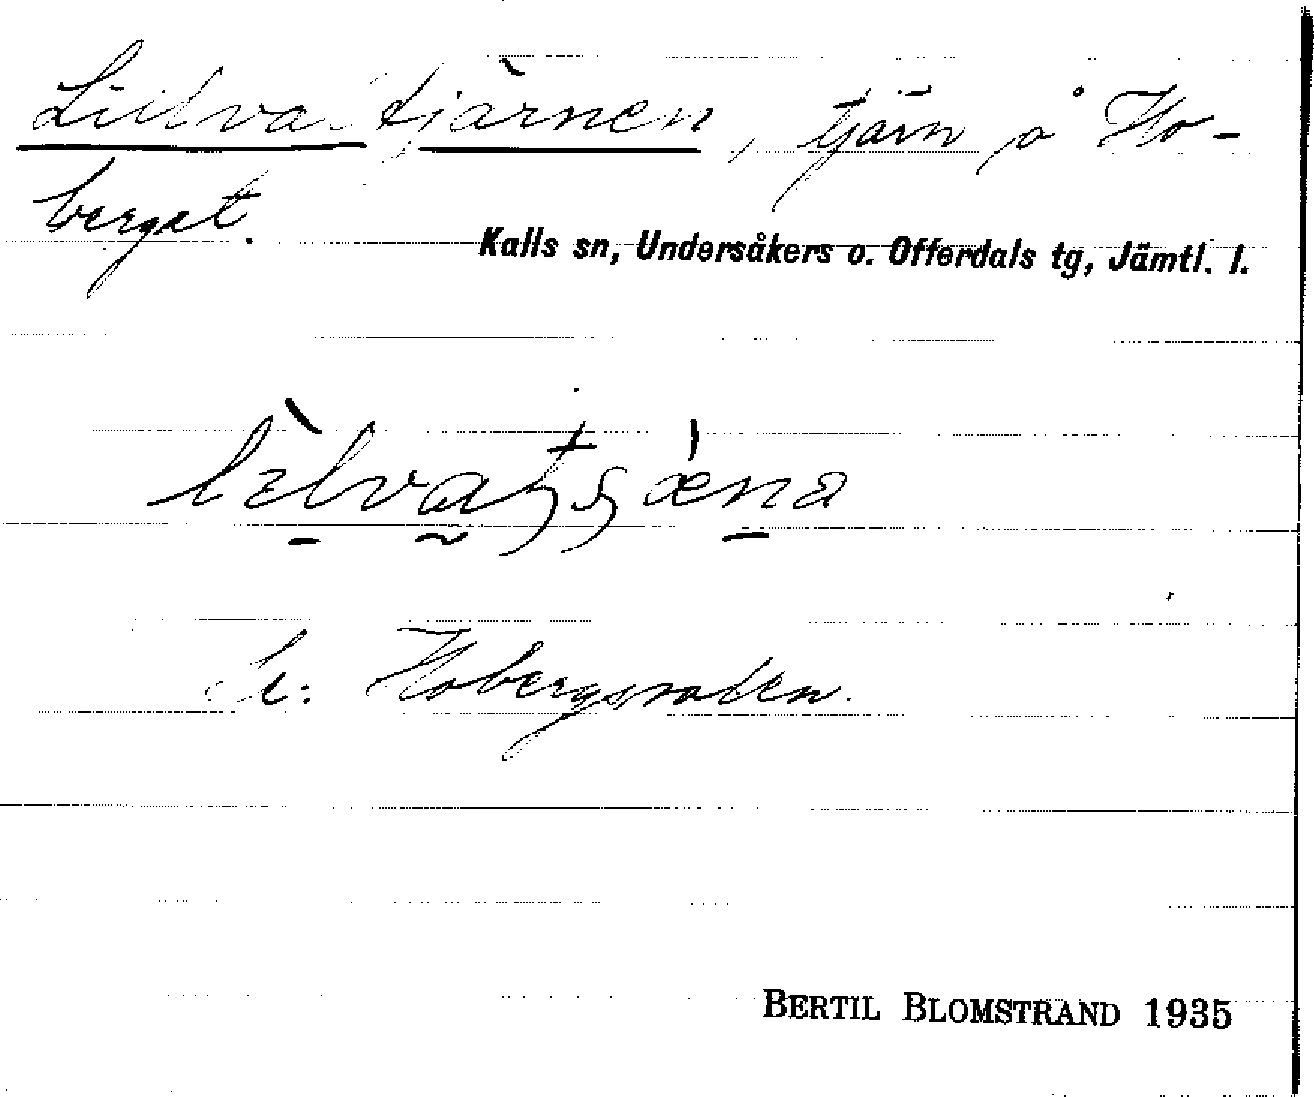 Lillvatjärnen, tjärn å Ho-
berget.
Kalls sn, Undersåkers o. Offerdals tg, Jämtl. l.
Se: Hobergsvallen.
BERTIL BLOMSTRAND 1935